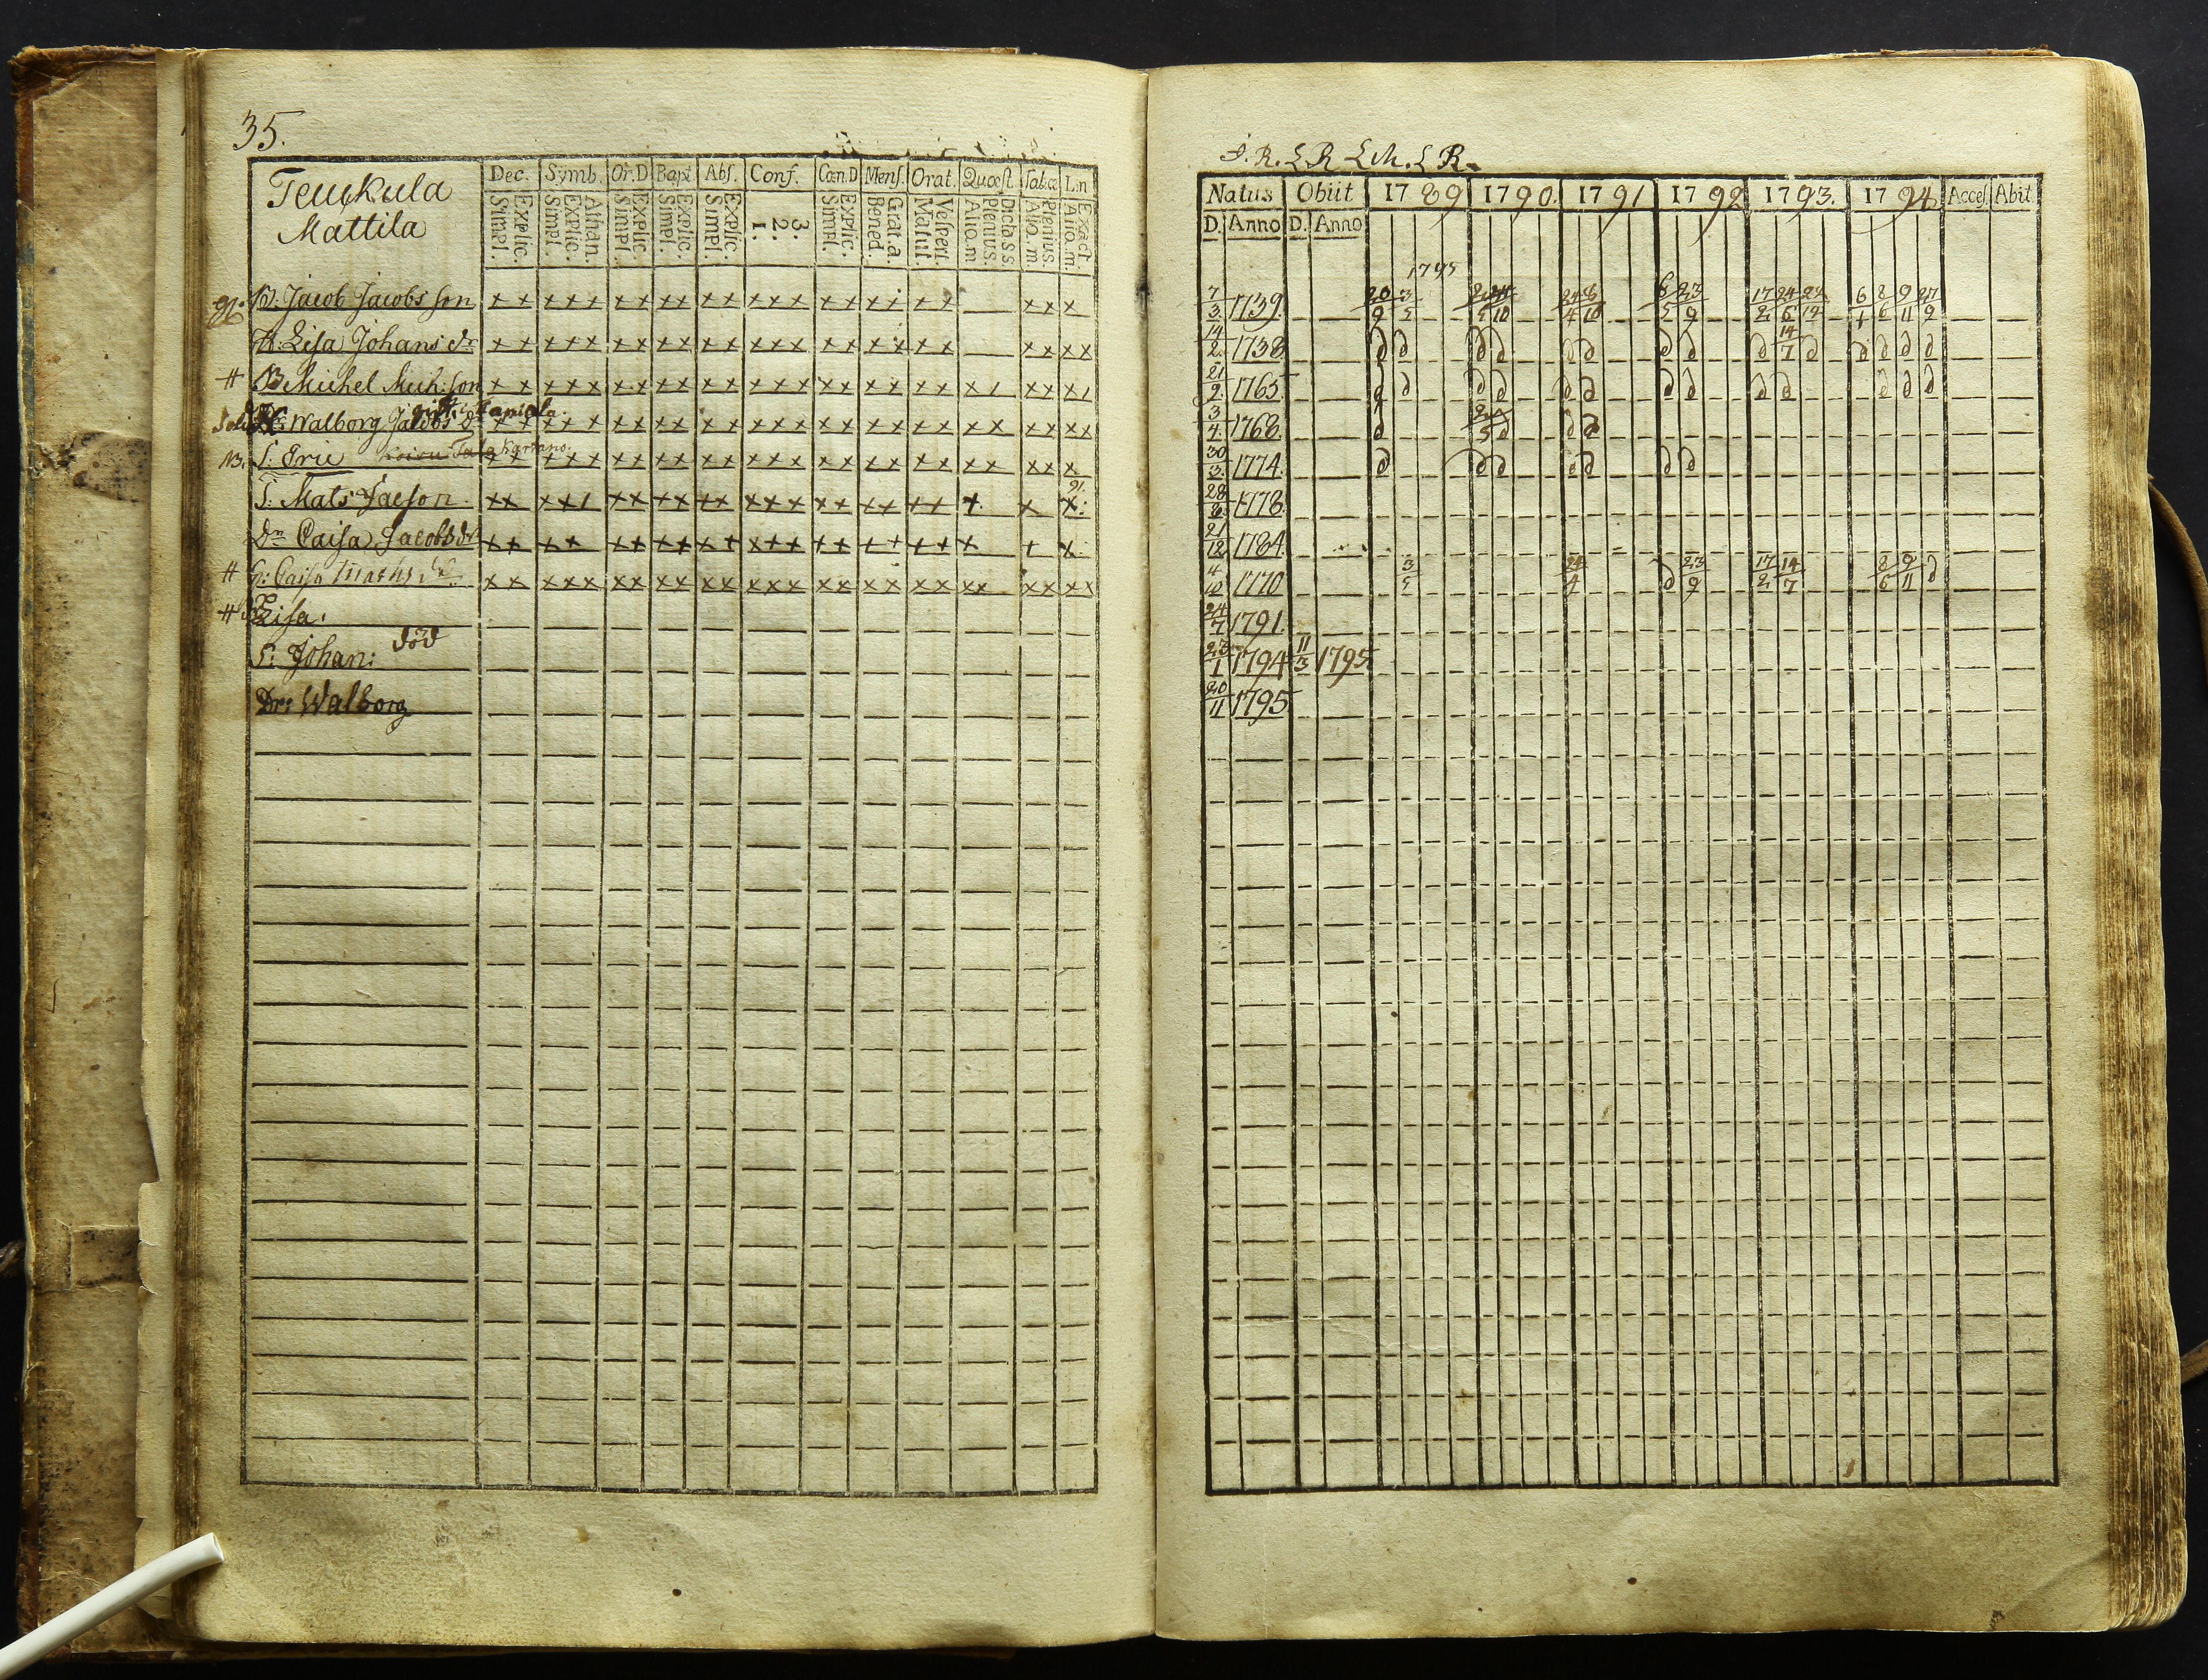 35.
Teuckula
Mattila
Dec. Symb. Or.D Bapt Abs. Conf. Cœn.D Mens. Orat. Quæst. Tabæ L.in
Explic. Simpl. Athan. Explic. Simpl. Explic. Simpl. Explic. Simpl. Explic. Simpl. 3. 2. 1. Explic. Simpl. Grat.a. Bened. Vesperi. Matut. Dicta S.S. Plenius. Aliq.m Plenius. Aliq.m. Exact. Aliq.m.
B: Jacob Jacobs son x x x x x x x x x x x x x x x x x x x x x x x x
H: Lisa Johans dr x x x x x x x x x x x x x x x x x x x x x x x x
# B Michel Mich: son x x x x x x x x x x x x x x x x x x x x x x x x
gift i Tapiola
Dr: Walborg Jacobs dr x x x x x x x x x x x x x x x x x x x x x x x x
NB. S: Eric Kartano x x x x x x x x x x x x x x x x x x x x x x x
91.
S: Mats Jacson x x x x x x x x x x x x x x x x x x x x x x
Dr Caisa Jacobs dr x x x x x x x x x x x x x x x x x x x x x
# H: Caisa Maths dr x x x x x x x x x x x x x x x x x x x x x x x x
# Lisa.
S: Johan: död
Dr: Walborg
J. R. L R L M. L R.
Natus Obiit 1789 1790. 1791 1792 1793. 1794 Acces. Abit
D. Anno D. Anno
1795
7/3 1739. 20/9 3/5 24/4 8/10 8/5 23/9 17/2 24/6 22/12 6/1 8/6 9/11 27/2
14/2 1738 14/7
21/9 1765
3/4 1768.
30/3 1774.
28/8 1778.
21/12 1784
4/10 1770 3/5 24/4 23/9 17/2 14/7 8/6 9/11
24/7 1791.
23/1 1794 11/3 1795
20/11 1795